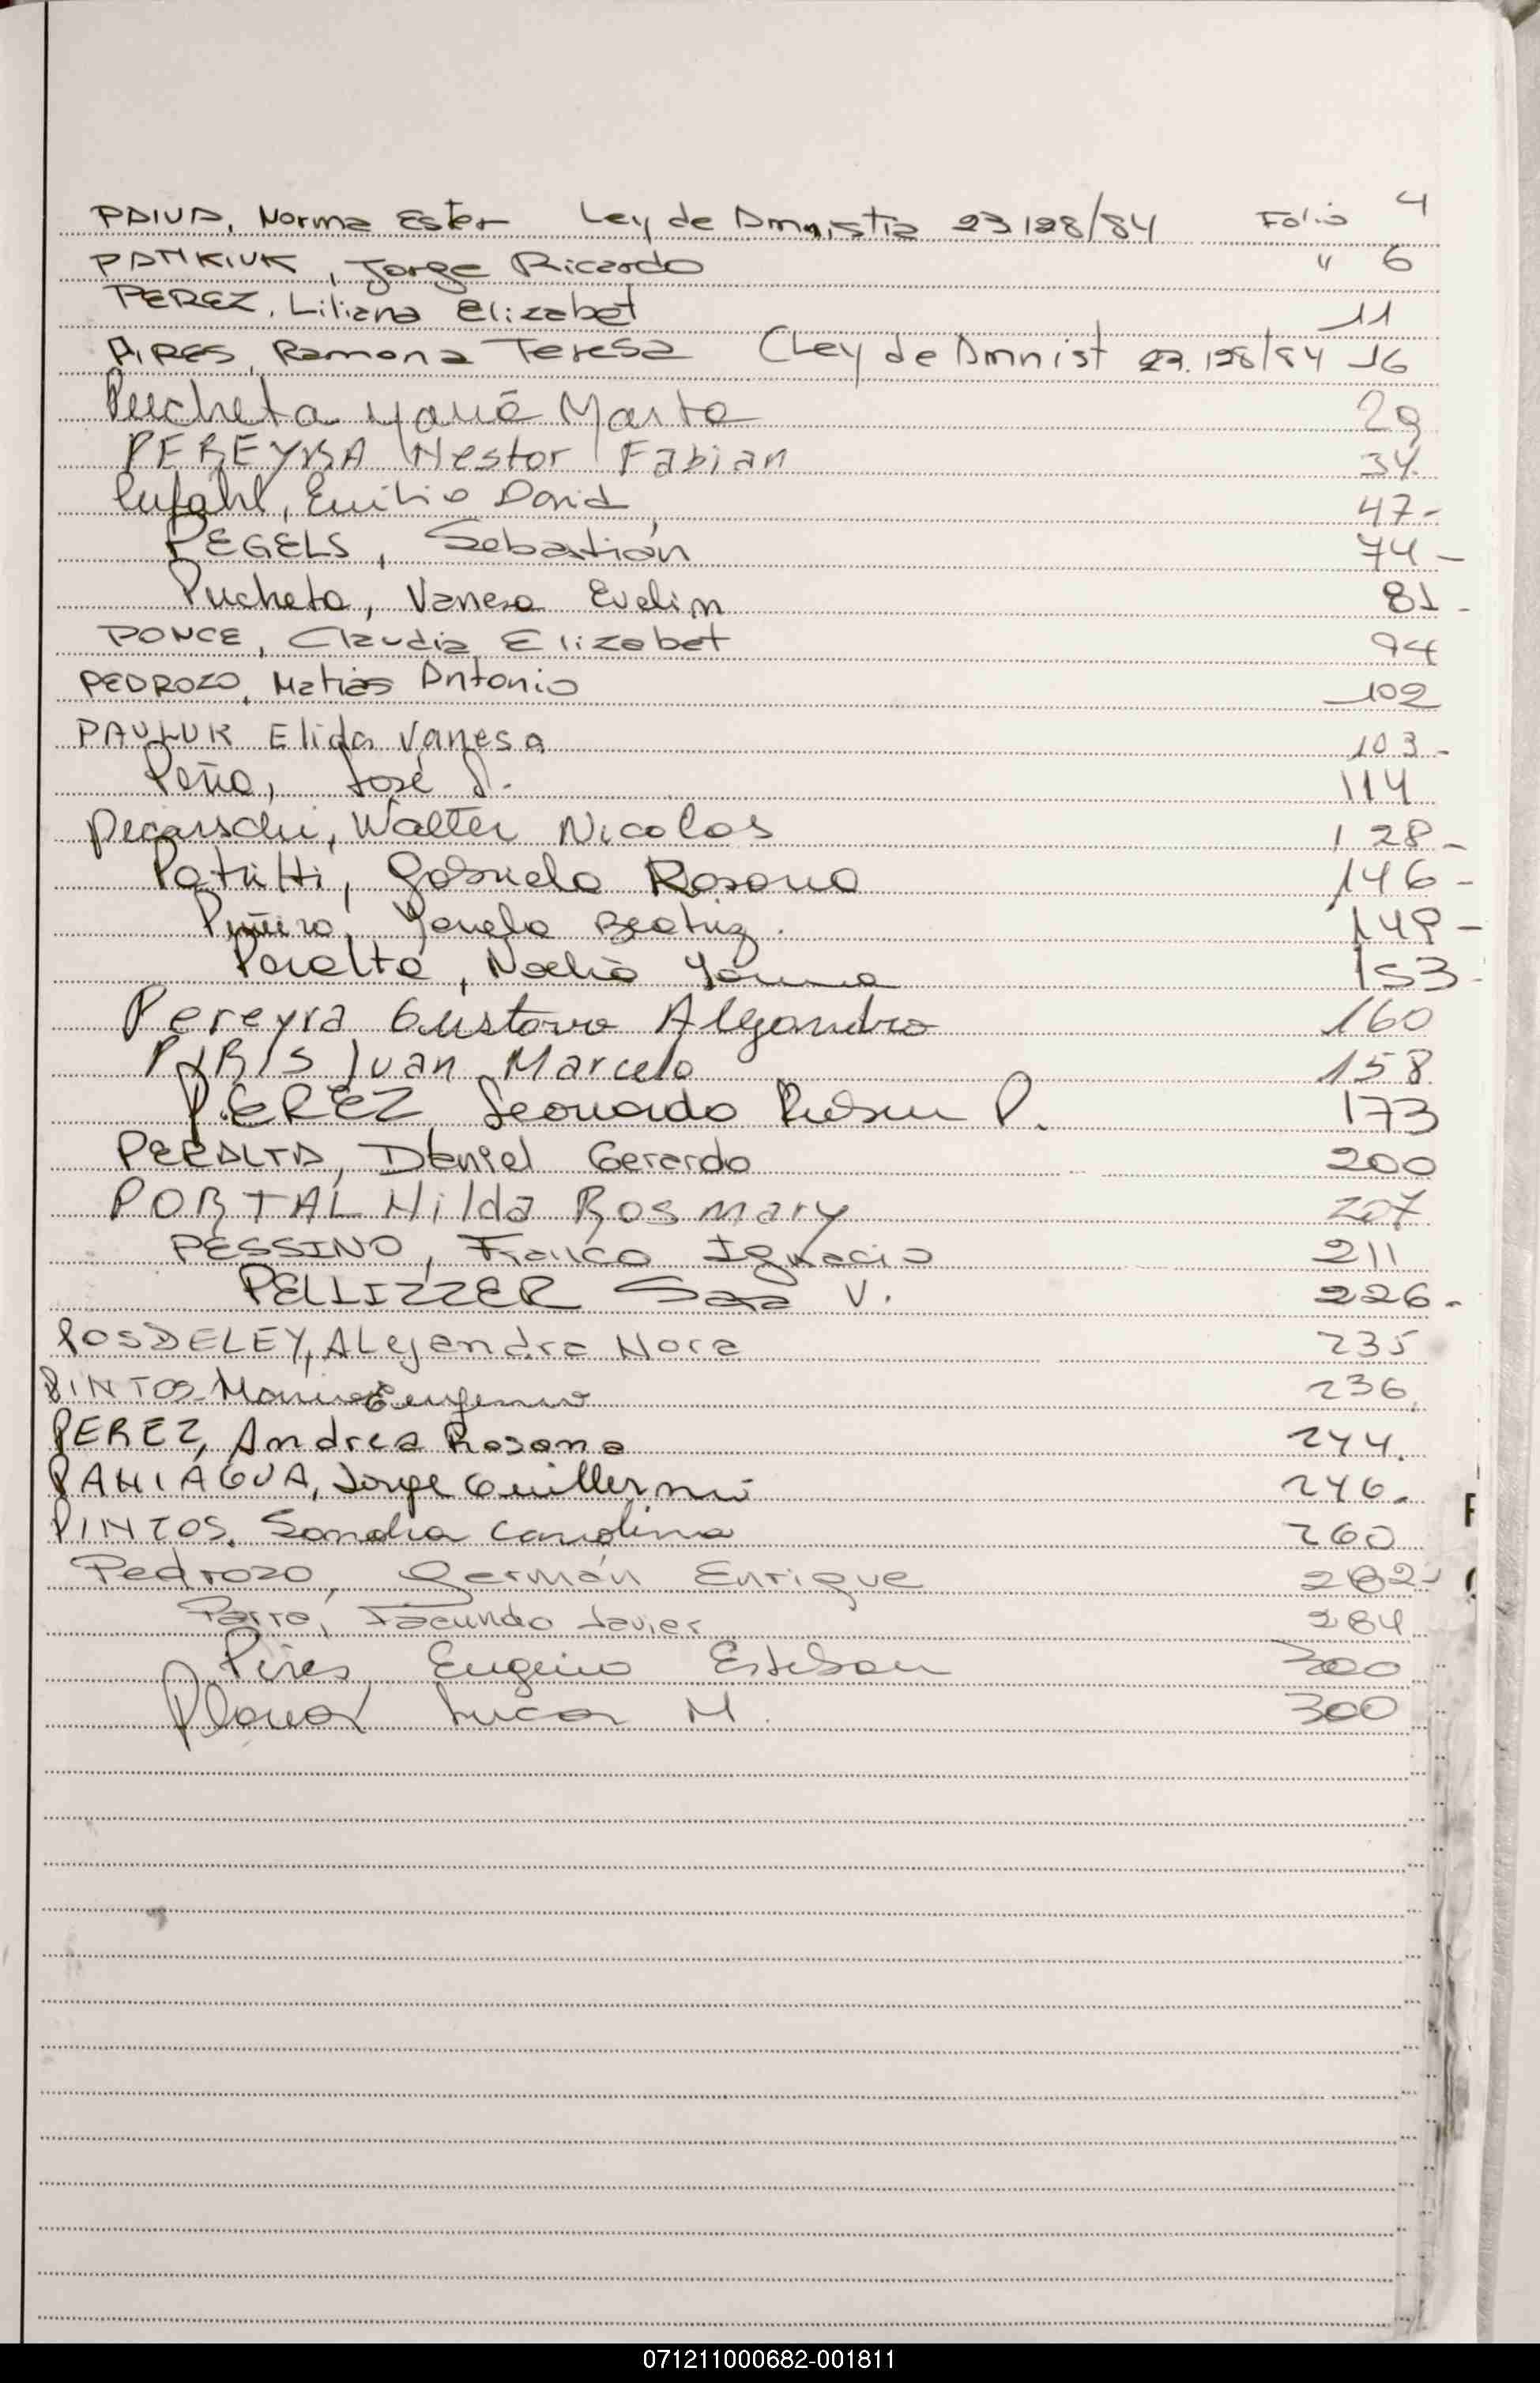 PAIVA, Norma Ester Ley de Amnistia 23128/84 Folio 4
PANKIUK, Jorge Ricardo " 6
PEREZ, Liliana Elizabet 11
PIRES, Ramona Teresa (Ley de Amnist 23.128/84 16
Pucheta María Marta 29
PEREYRA Nestor Fabian 34
Pufahl, Emilio David 47-
PEGELS, Sebastián 74-
Pucheta, Vanesa Evelin 81-
PONCE, Claudia Elizabet 94
PEDROZO, Matias Antonio 102
PAULUK Elida Vanesa 103-
Peña, José 114
Walter Nicolas 128-
Patritti, Gabriela Rosana 146-
Piñeiro, Beatriz. 149-
Peralta, Noelia 153-
Pereyra Gustavo Alejandro 160
Juan Marcelo 158
PEREZ Leonardo Ruben P. 173
PERALTA, Daniel Gerardo 200
PORTAL Hilda Rosmary 207
PESSINO, Franco Ignacio 211
PELLIZZER Sara V. 226-
POSDELEY, Alejandra Nora 235
PINTOS Maria Eugenia 236
PEREZ, Andrea Rosana 244.
PANIAGUA, Jorge Guillermo 246.
PINTOS, Sandra Carolina 260
Pedrozo, Germán Enrique
Parra, Facundo Javier 284
Pires Eugenio Esteban 300
Lucas M. 300
071211000682-001811